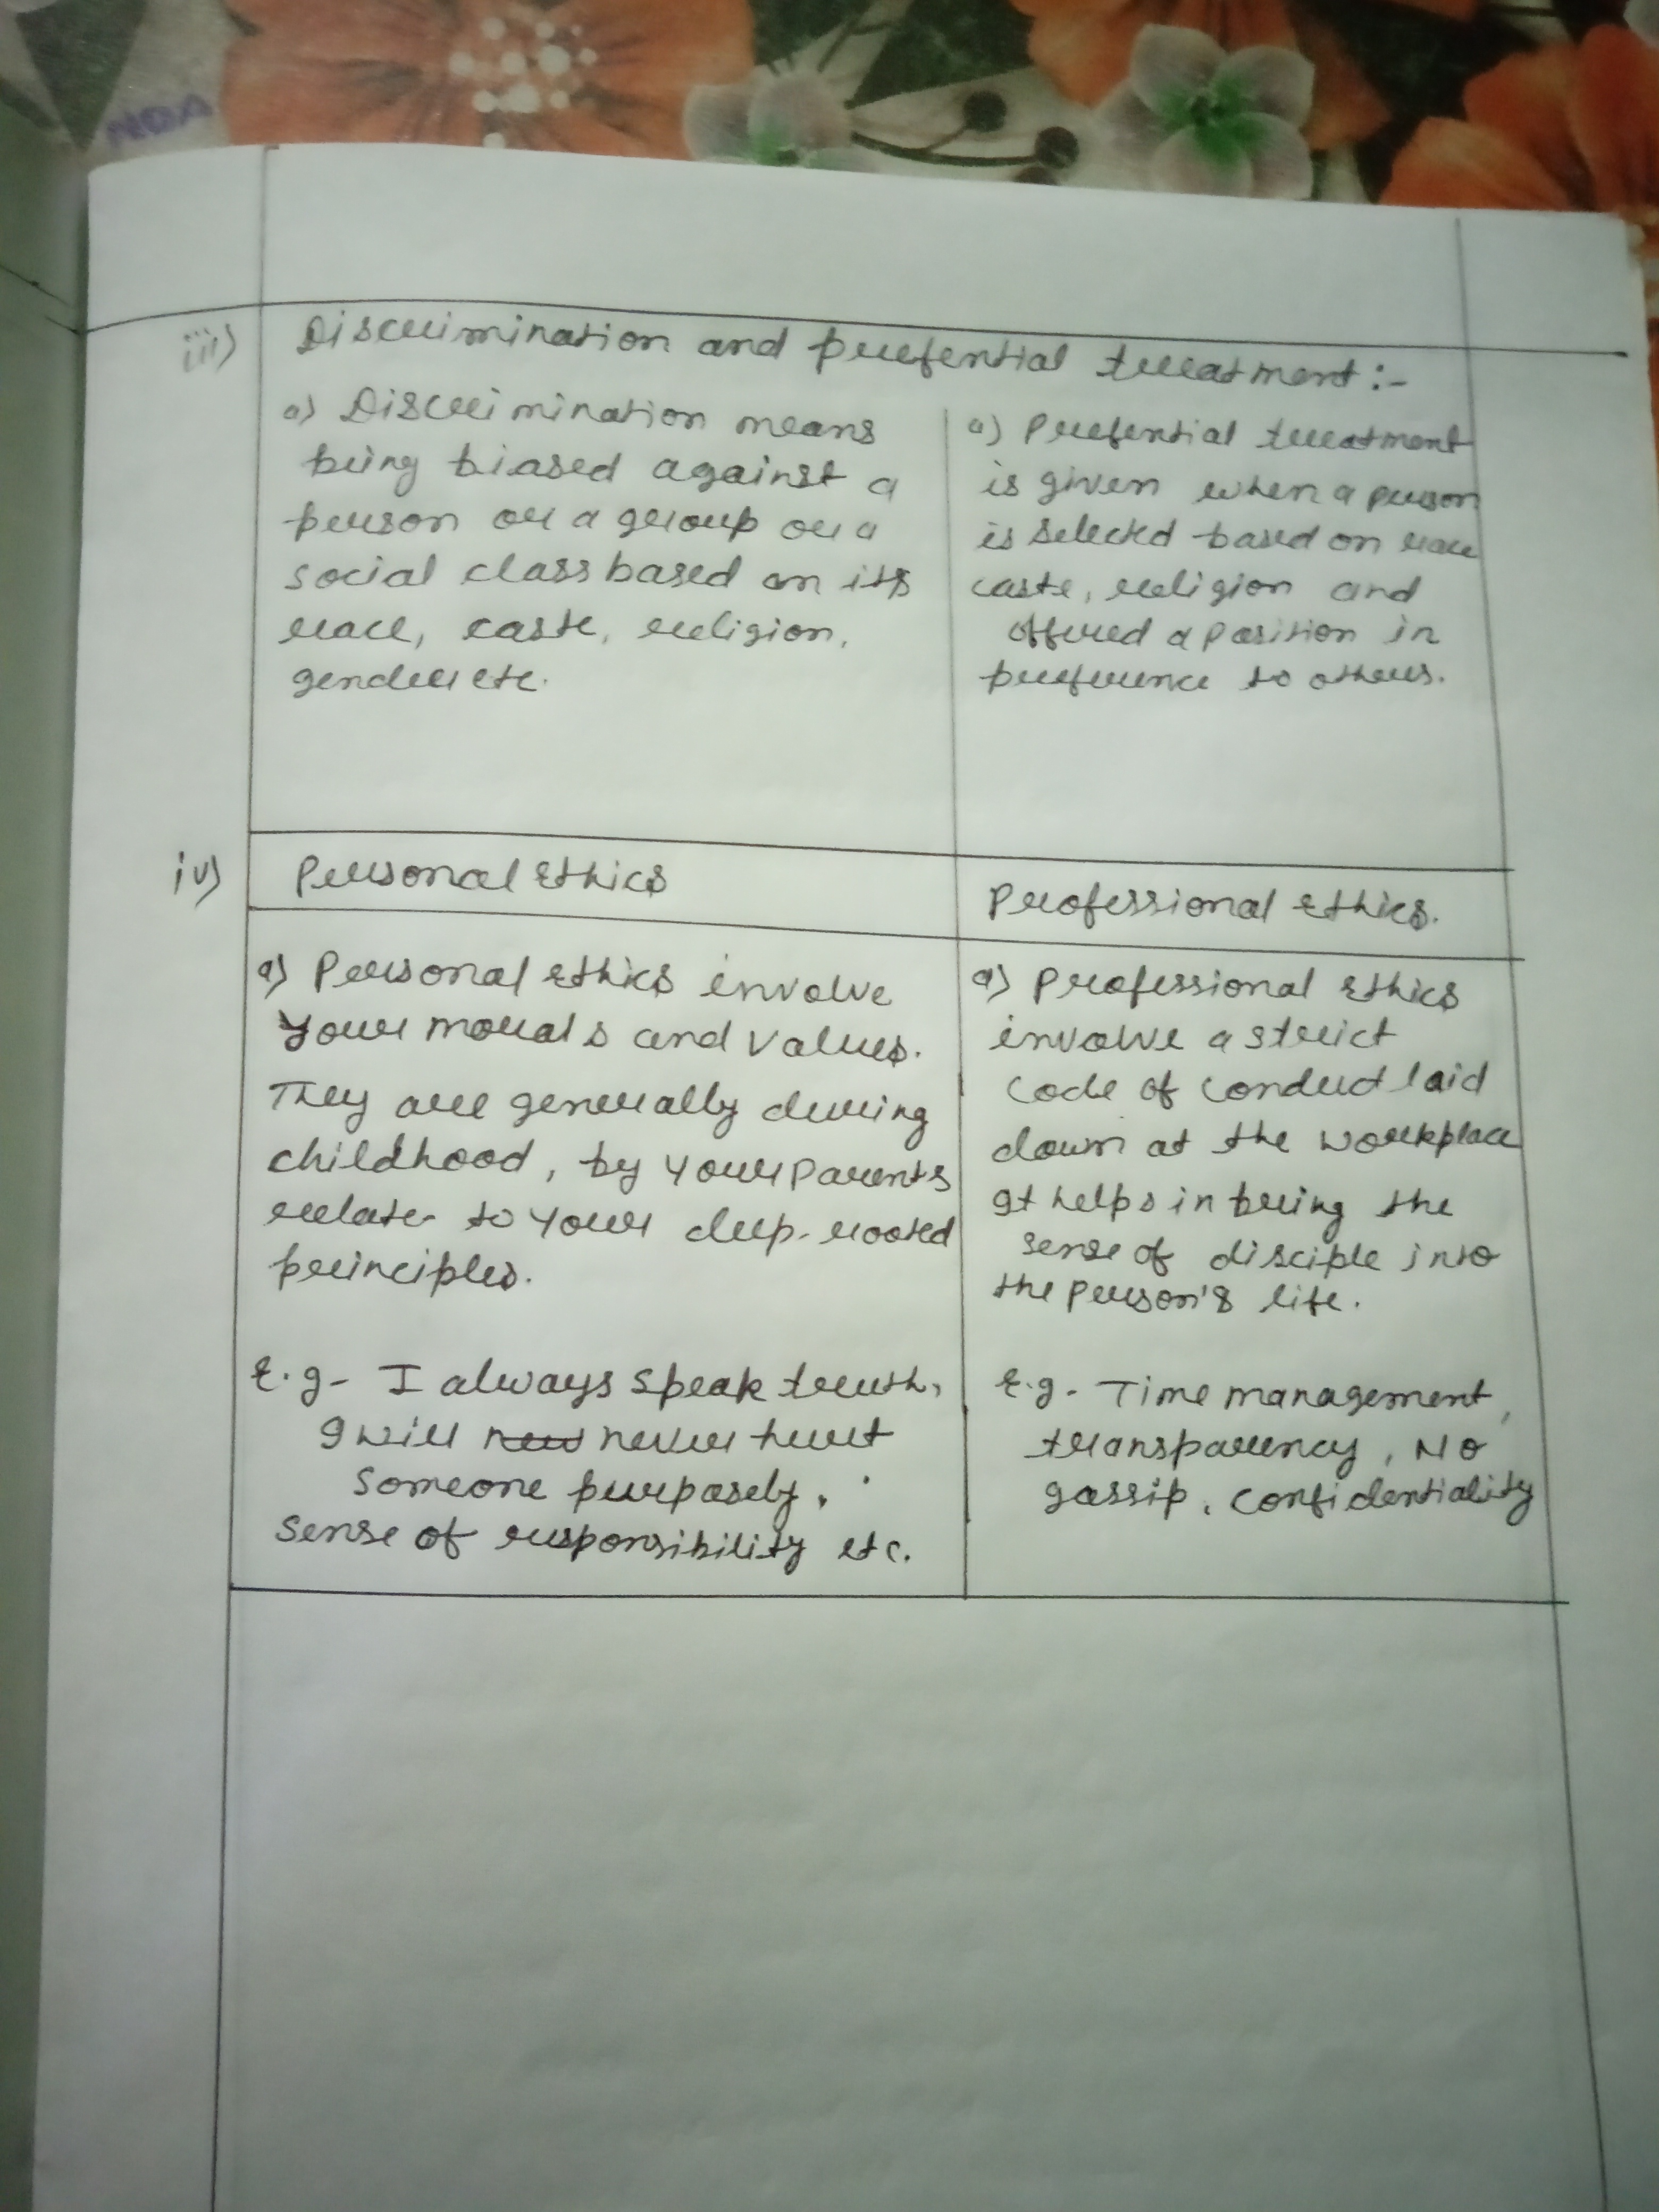 NDA
iii) Discrimination and prefential treatment :-
a) Discrimination means
being biased against a
person or a group or a
social class based on its
race, caste, religion,
gender etc.
a) Prefential treatment
is given when a person
is selected based on race
caste, religion and
offered a position in
preference to others.
iv) Personal Ethics
Professional Ethics.
a) Personal ethics involve
your morals and values.
They are generally during
childhood, by your parents
relate to your deep-rooted
principles.
E.g - I always speak truth,
I will never hurt
someone purposely,
sense of responsibility etc.
a) Professional ethics
involve a strict
code of conduct laid
down at the workplace
It helps in bring the
sense of disciple into
the person's life.
E.g - Time management,
transparency, No
gossip, confidentiality